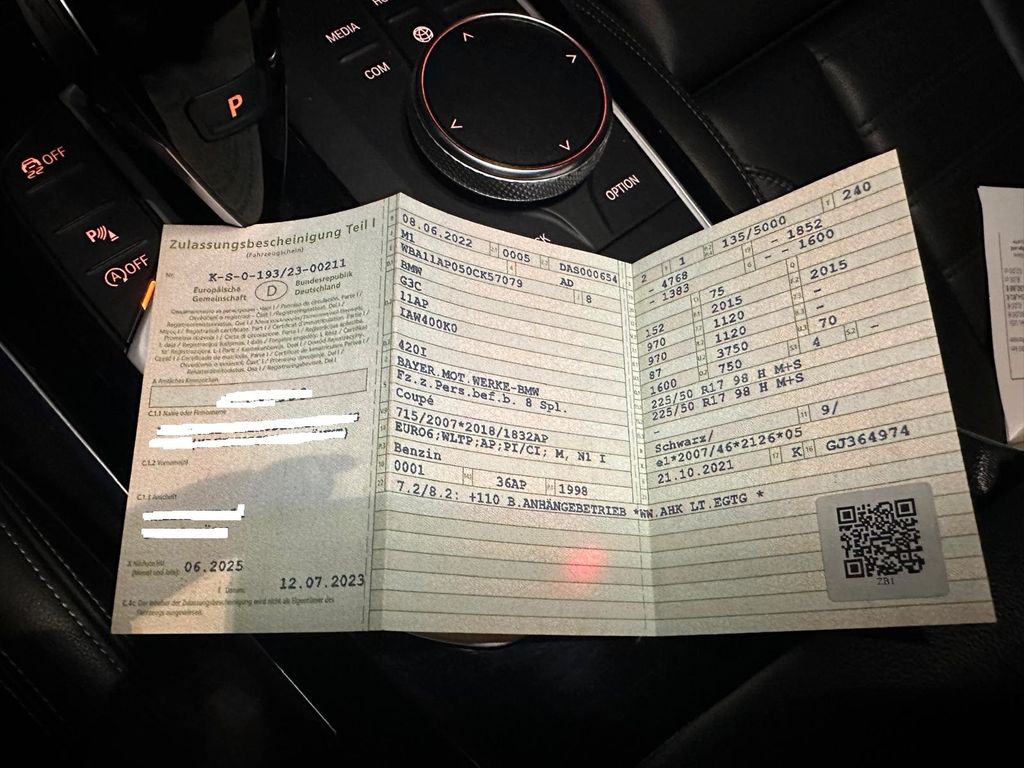 MEDIA
COM
OPTION
P
OFF
P
A OFF
Zulassungsbescheinigung Teil I
(Fahrzeugschein)
Nr. K-S-O-193/23-00211
Europäische Gemeinschaft
D
Bundesrepublik Deutschland
A Amtliches Kennzeichen
C.1.1 Name oder Firmenname
C.1.2 Vorname(n)
C.1.3 Anschrift
06.2025
I Datum:
12.07.2023
C.4c Der Inhaber der Zulassungsbescheinigung wird nicht als Eigentümer des Fahrzeugs ausgewiesen.
08.06.2022 0005 DAS000654
M1 AD
WBA11AP050CK57079 8
BMW
G3C
11AP
IAW400K0
420I
BAYER.MOT.WERKE-BMW
Fz.z.Pers.bef.b. 8 Spl.
Coupé
715/2007*2018/1832AP
EURO6;WLTP;AP;PI/CI; M, N1 I
Benzin
0001 36AP 1998
7.2/8.2: +110 B.ANHÄNGEBETRIEB *WW.AHK LT.EGTG *
2 1 135/5000 240
- 4768 - 1852
- 1383 - 1600
75
152 2015 2015
970 1120 -
970 1120 -
87 3750 70 -
1600 750 4
225/50 R17 98 H M+S
225/50 R17 98 H M+S
-
Schwarz/ 9/
e1*2007/46*2126*05
21.10.2021 K GJ364974
ZB1